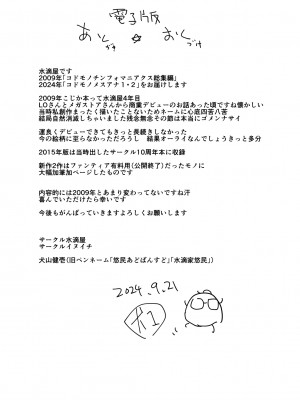 電子版
あとがき・おくづけ
水滴屋です
2009年「コドモノチンフォマニアクス総集編」
2024年「コドモノメスアナ1・2」をお届けします
2009年こじか本って水滴屋4年目
LOさんとメガストアさんから商業デビューのお話あった頃ですね懐かしい
当時私創作まったく描いたことないためネームに心底四苦八苦
結局自然消滅しちゃいました残念無念その節は本当にゴメンナサイ
運良くデビューできてもきっと長続きしなかった
今の絵柄に至らなかっただろうし　結果オーライなんでしょうきっと多分
2015年版は当時出したサークル10周年本に収録
新作2作はファンティア有料用（公開終了）だったモノに
大幅加筆加ページしたものです
内容的には2009年とあまり変わってないですね汗
喜んでいただけたら幸いです
今後もがんばっていきますよろしくお願いします
サークル水滴屋
サークルイヌイチ
犬山健壱（旧ペンネーム「悠民あどばんすど」「水滴家悠民」）
2024.9.21